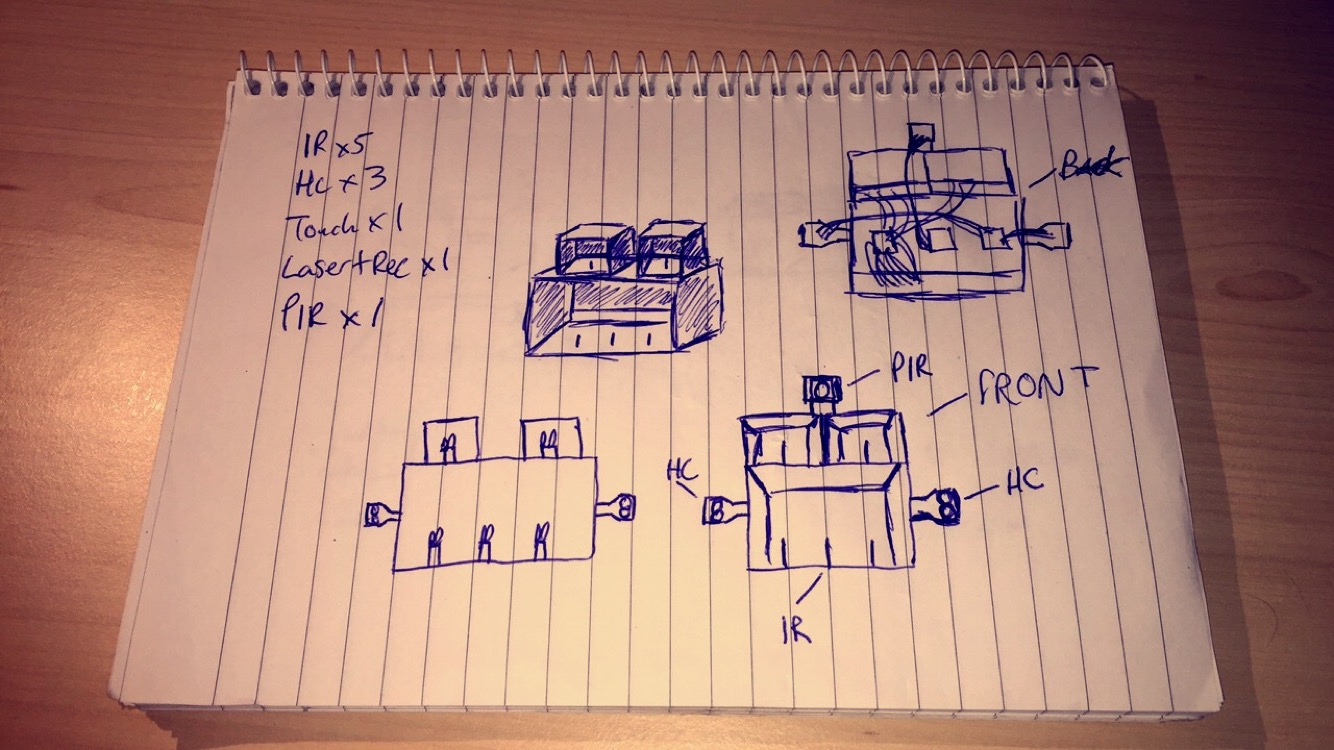 IR x5
HC x 3
Touch x 1
Laser+Rec x 1
PIR x 1
Back
PIR
FRONT
HC
HC
IR